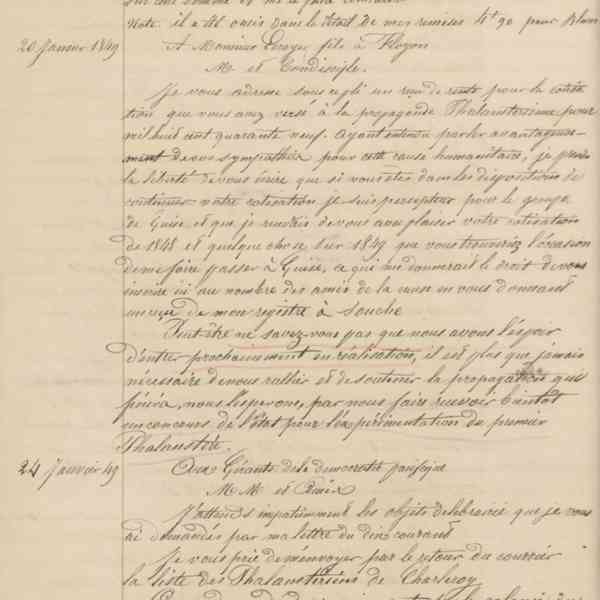 Note. il a été omis dans le détail de mes remises 4f 90 pour Blum
20 Janvier 1849
A Monsieur Leroy fils à Floyon
M. et Condisciple.
Je vous adresse sous ce pli un reçu de rente pour la cotisa
tion que vous avez versé à la propagande Phalanstérienne pour
mil huit cent quarante neuf. Ayant entendu parler avantageuse-
ment de vos sympathies pour cette cause humanitaire, je prends
la liberté de vous écrire que si vous êtes dans les dispositions de
continuer votre cotisation je suis percepteur pour le groupe
de Guise et que je recevrais de vous avec plaisir votre cotisation
de 1848 et quelque chose sur 1849 que vous trouveriez l'occasion
de me faire passer à Guise, ce qui me donnerait le droit de vous
inscrire ici au nombre des amis de la cause en vous donnant
un reçu de mon registre à souche
Peut être ne savez-vous pas que nous avons l'espoir
d'entrer prochainement en réalisation, il est plus que jamais
nécessaire de nous rallier et de soutenir la propagation qui
finira, nous l'espérons, par nous faire recevoir bientot
un concours de l'état pour l'expérimentation du premier
Phalanstère.
24 Janvier 49
Aux Gérants de la démocratie pacifique
M M et Amis
J'attends impatiemment les objets de librairie que je vous
ai demandés par ma lettre du dix courant
Je vous prie de m'envoyer par le retour du courrier
la liste des Phalanstériens de Charleroy